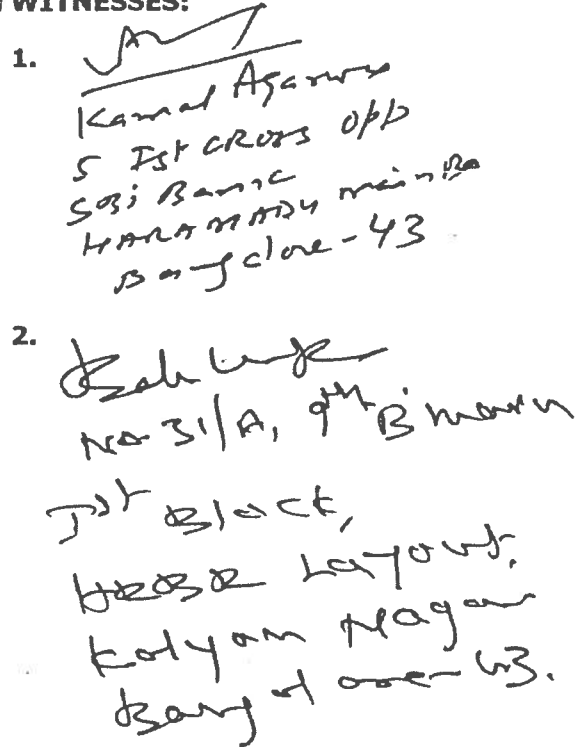 WITNESSES:
1.
Kamal Agarwal
5 Ist CROSS opp
SBi Bank
HARAMADU main Rd
Bangalore - 43
2.
No 31/A, 9th B main
Ist Block,
HRBR Layout,
Kalyan Nagar
Bangalore - 43.